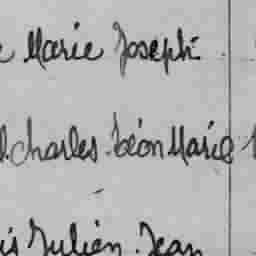 e Marie Joseph
l. Charles. Léon Marie
is Julien. Jean